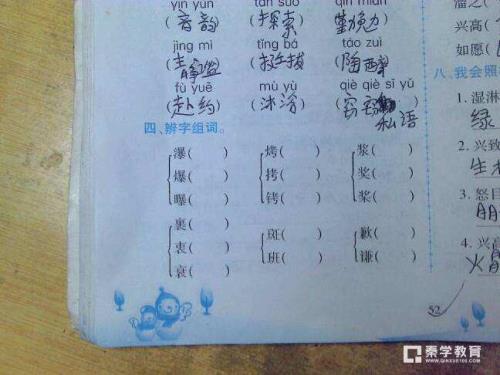 yīn yùn tàn suǒ qín miǎn
(音韵) (探索) (勤勉)
jìng mì tǐng bá táo zuì
(静谧) (挺拔) (陶醉)
fù yuē mù yù qiè qiè sī yǔ
(赴约) (沐浴) (窃窃私语)
四、辨字组词。
瀑( ) 烤( ) 浆( )
爆( ) 拷( ) 奖( )
曝( ) 铐( ) 桨( )
裹( )
衷( ) 斑( ) 歉( )
衰( ) 班( ) 谦( )
52
溜之
兴高(
如愿(
八、我会照
1. 湿淋
绿
2. 兴致
生
3. 怒目
4. 兴高
火冒
秦学教育
www.qinxue100.com